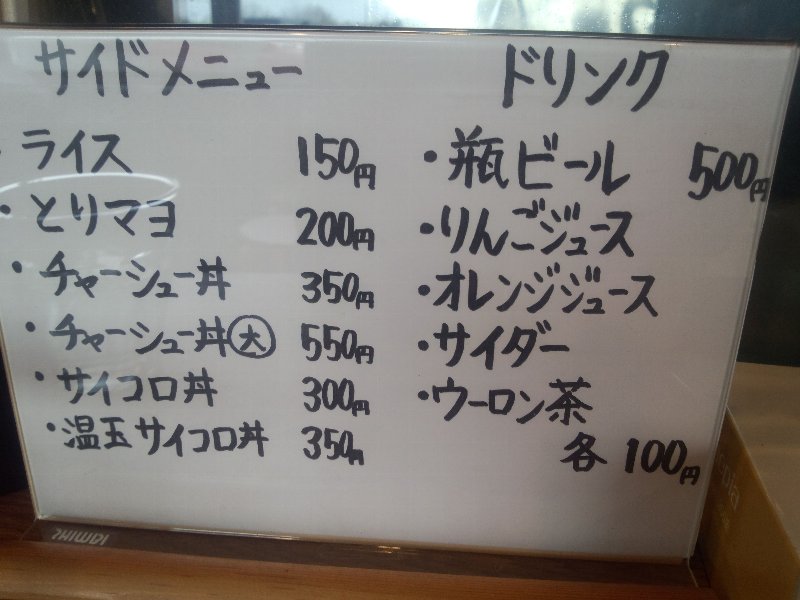 サイドメニュー
・ライス 150円
・とりマヨ 200円
・チャーシュー丼 350円
・チャーシュー丼大 550円
・サイコロ丼 300円
・温玉サイコロ丼 350円
ドリンク
・瓶ビール 500円
・りんごジュース
・オレンジジュース
・サイダー
・ウーロン茶
各 100円